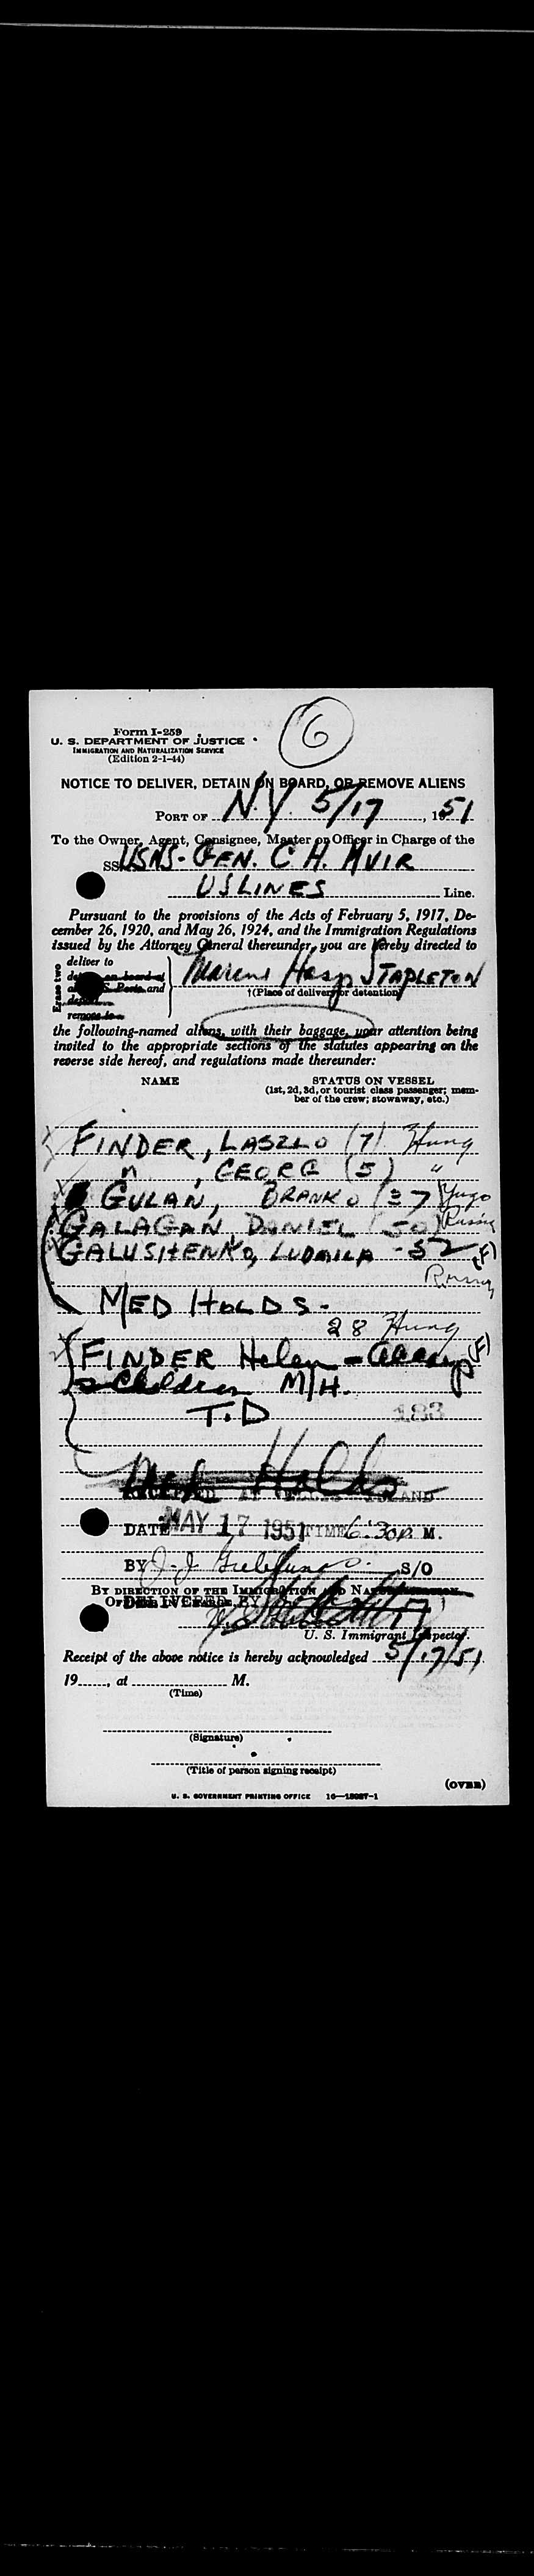 6
Form I-259
U. S. DEPARTMENT OF JUSTICE
IMMIGRATION AND NATURALIZATION SERVICE
(Edition 2-1-44)
NOTICE TO DELIVER, DETAIN ON BOARD, OR REMOVE ALIENS
PORT OF N.Y. 5/17, 1951
To the Owner, Agent, Consignee, Master or Officer in Charge of the
SS USNS-GEN. C H. MUIR
US LINES Line.
Pursuant to the provisions of the Acts of February 5, 1917, De-
cember 26, 1920, and May 26, 1924, and the Immigration Regulations
issued by the Attorney General thereunder, you are hereby directed to
Erase two
deliver to
on board at
U.S. Ports and
remove to
Marine Hosp STAPLETON
†(Place of delivery or detention)
the following-named aliens, with their baggage, your attention being
invited to the appropriate sections of the statutes appearing on the
reverse side hereof, and regulations made thereunder:
NAME STATUS ON VESSEL
(1st, 2d, 3d, or tourist class passenger; mem-
ber of the crew; stowaway, etc.)
FINDER, LASZLO (7) Hung
" , GEORG (5) "
GULAN, BRANKO (37 Yugo
GALAGAN DANIEL (50)
GALUSHENKO, LUDMILA - 52 (F)
MED HOLDS -
28 Hung
FINDER Helen - (F)
2 Children M/H.
T.D
183
Med Holds
RECEIVED AT ELLIS ISLAND
DATE MAY 17 1951 TIME 6:30 P. M.
BY J. J. S/O
BY DIRECTION OF THE IMMIGRATION AND NATURALIZATION
OFFICER IN CHARGE,
DELIVERED BY
U. S. Immigrant Inspector.
Receipt of the above notice is hereby acknowledged 5/17/51
19____, at ____ M.
(Time)
(Signature)
(Title of person signing receipt)
(OVER)
U. S. GOVERNMENT PRINTING OFFICE 16—18087-1